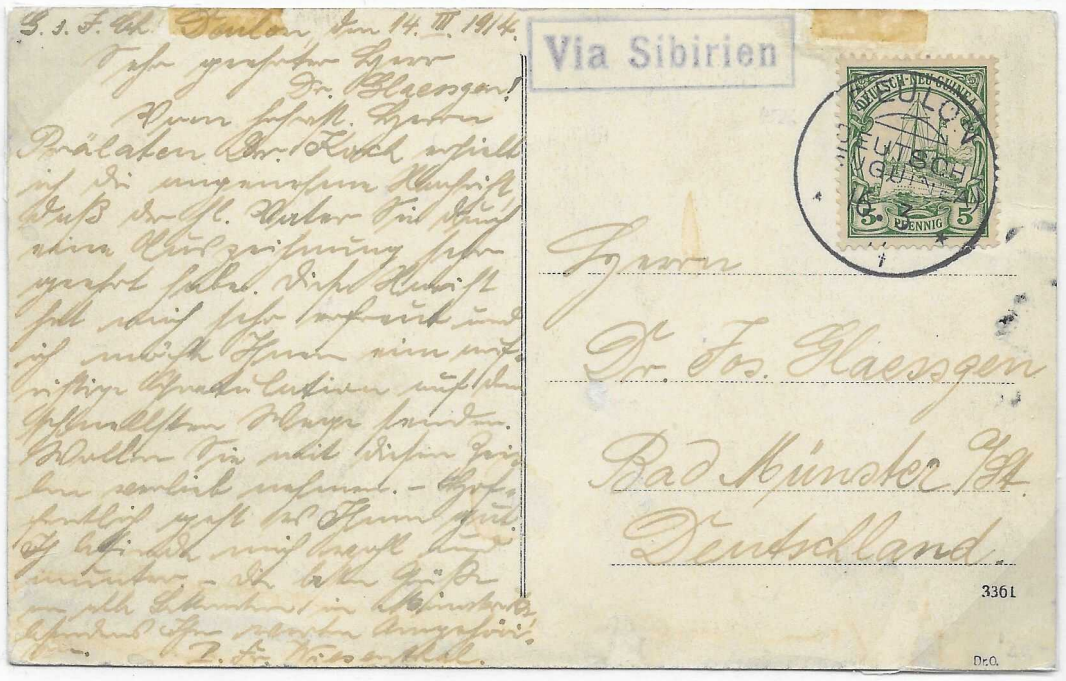 G. s. J. Ch. Deulon, den 14. III. 1914.
Sehr geehrter Herr
Dr. Glaessgen!
Vom hochw. Herrn
Prälaten Dr. Koch erhielt
ich die angenehme Nachricht,
daß der hl. Vater Sie durch
eine Auszeichnung sehr
geehrt habe. Diese Nachricht
hat mich sehr erfreut und
ich möchte Ihnen eine auf-
richtige Gratulation auf dem
schnellsten Wege senden.
Wollen Sie mit diesen Zei-
len vorlieb nehmen. – Hof-
fentlich geht es Ihnen gut.
Ich befinde mich wohl und
munter. – Die besten Grüße
an alle Bekannten in Münster
besonders Ihre werten Angehöri-
gen. P. Fr. Wiesenthal.
Via Sibirien
DEUTSCH-NEU-GUINEA
5 PFENNIG 5
DEULON
DEUTSCH
NEUGUINEA
3
14
Herrn
Dr. Jos. Glaessgen
Bad Münster a/St.
Deutschland.
3361
Dr.O.